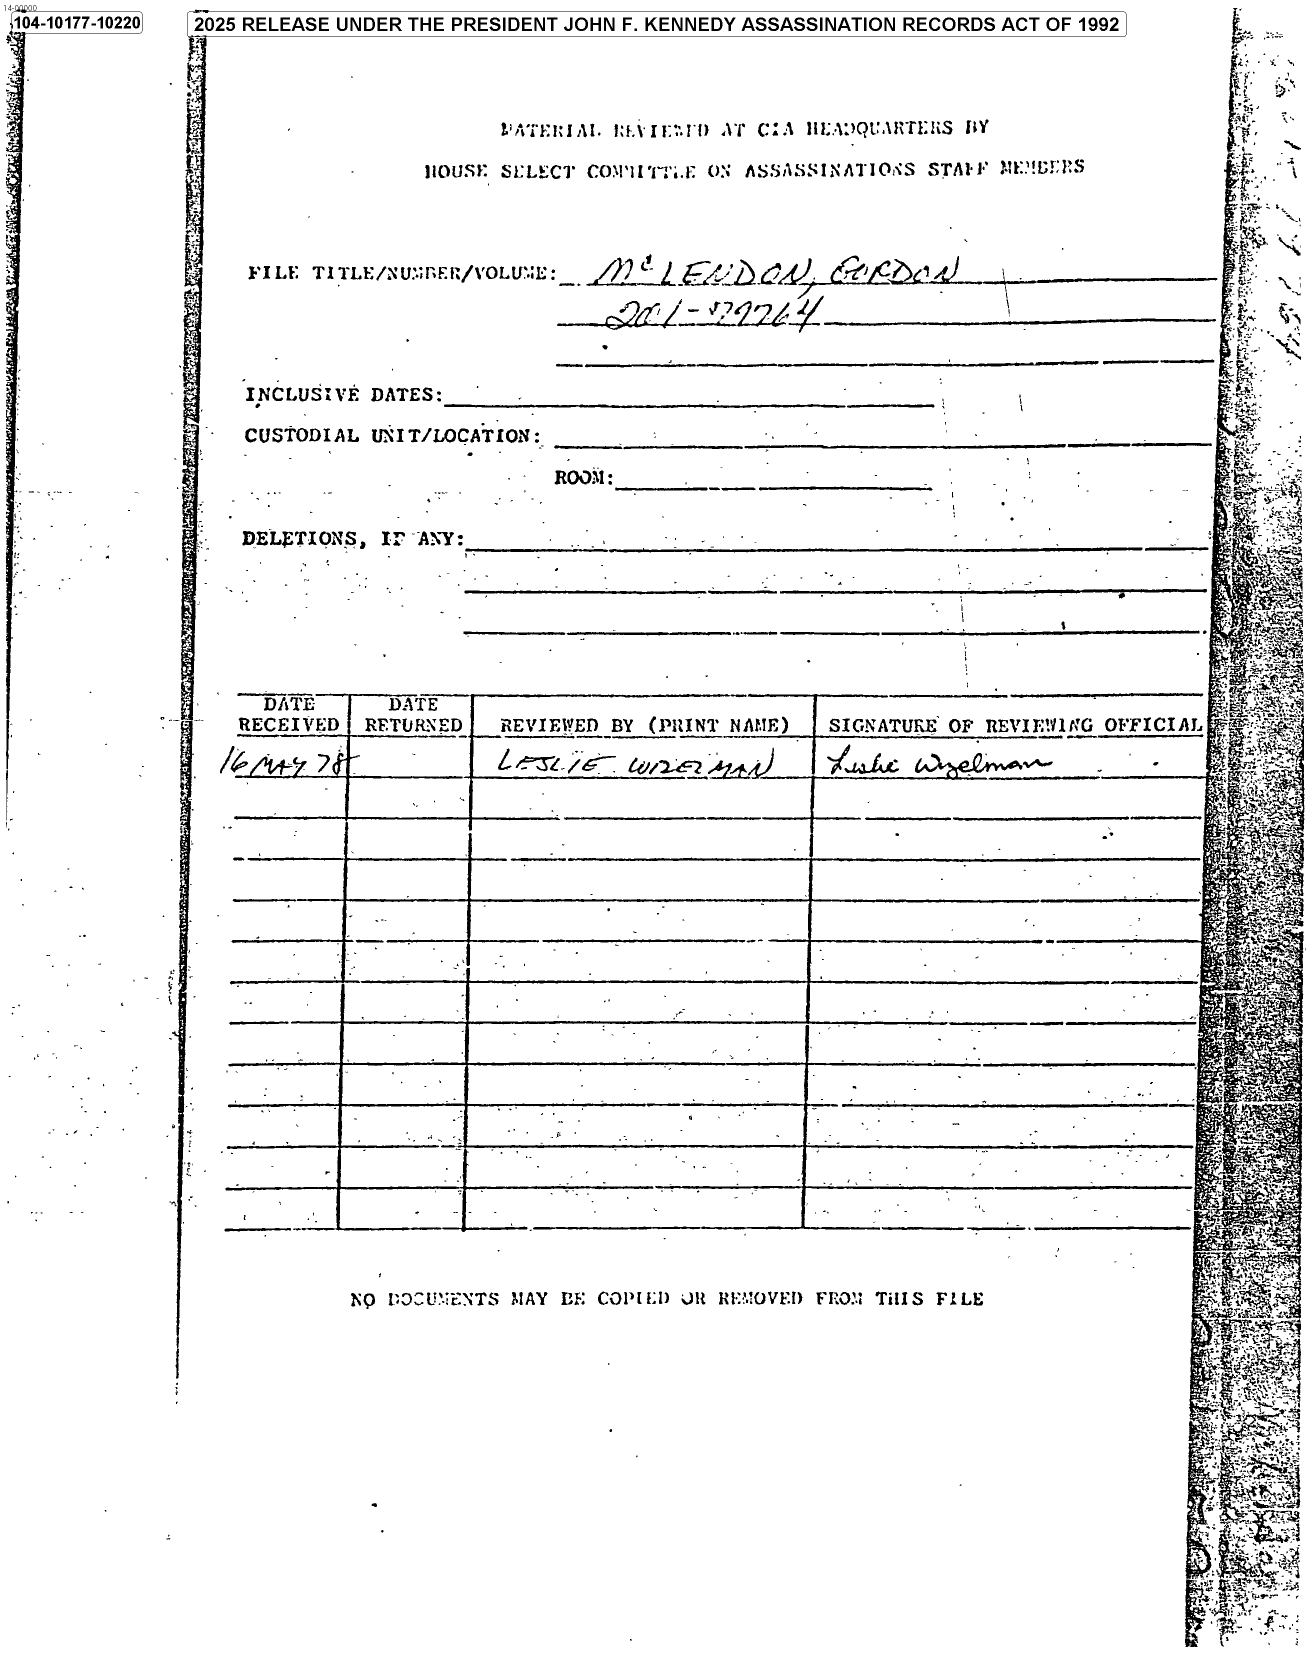 14-00000
104-10177-10220
2025 RELEASE UNDER THE PRESIDENT JOHN F. KENNEDY ASSASSINATION RECORDS ACT OF 1992
MATERIAL REVIEWED AT CIA HEADQUARTERS BY
HOUSE SELECT COMMITTEE ON ASSASSINATIONS STAFF MEMBERS
FILE TITLE/NUMBER/VOLUME: McLENDON, GORDON
201-
INCLUSIVE DATES:
CUSTODIAL UNIT/LOCATION:
ROOM:
DELETIONS, IF ANY:
DATE RECEIVED DATE RETURNED REVIEWED BY (PRINT NAME) SIGNATURE OF REVIEWING OFFICIAL
16 MAY 78 LESLIE WIZELMAN Leslie Wizelman
NO DOCUMENTS MAY BE COPIED OR REMOVED FROM THIS FILE